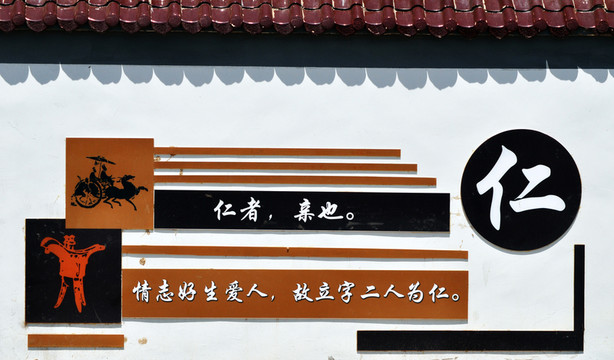 仁者，亲也。
情志好生爱人，故立字二人为仁。
仁